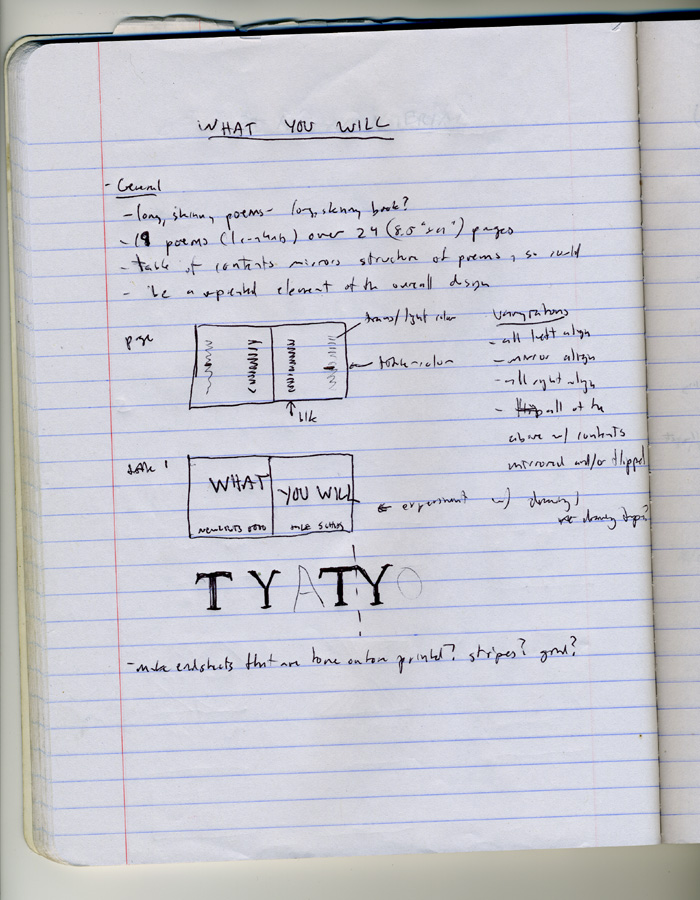 WHAT YOU WILL
- General
- long, skinny poems - long, skinny book?
- 19 poems over 24 (8.5" x 11") pages
- table of contents mirrors structure of poems, so could
- be a repeated element of the overall design
page
trans/light color
← color
↑ blk
Variations
- all left align
- mirror align
- all right align
- all of the
above w/ contents
mirrored and/or flipped
title
WHAT
YOU WILL
← experiment w/ drawing/
drawing
T Y A T Y O
- make endsheets that are tone on tone printed? stripes? grid?